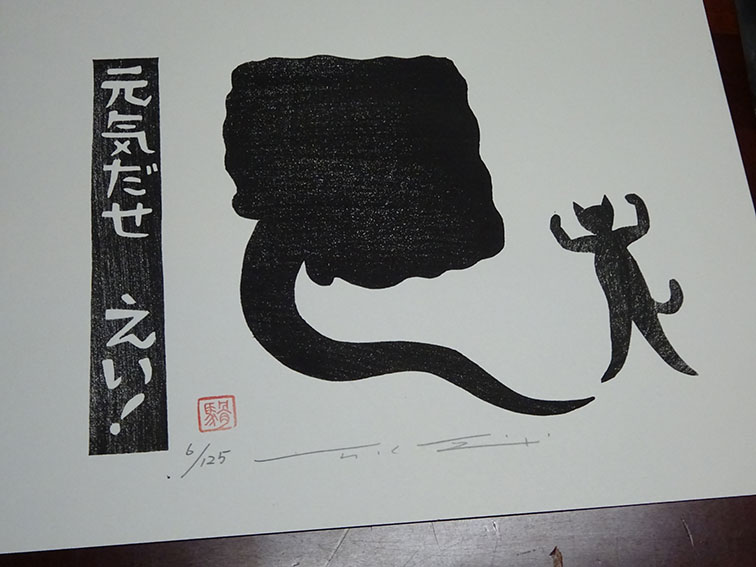 元気だせ えい！
6/125